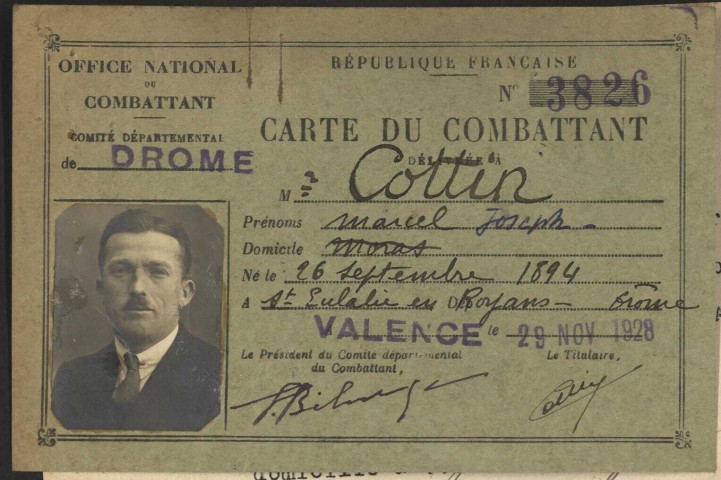 OFFICE NATIONAL
DU
COMBATTANT
COMITÉ DÉPARTEMENTAL
de DROME
RÉPUBLIQUE FRANÇAISE
N° 3826
CARTE DU COMBATTANT
DÉLIVRÉE À
Mr Cottin
Prénoms Marcel Joseph
Domicile Moras
Né le 26 Septembre 1894
A St Eulalie en Royans - Drôme
VALENCE le 29 NOV 1928
Le Président du Comité départemental
du Combattant,
Le Titulaire,